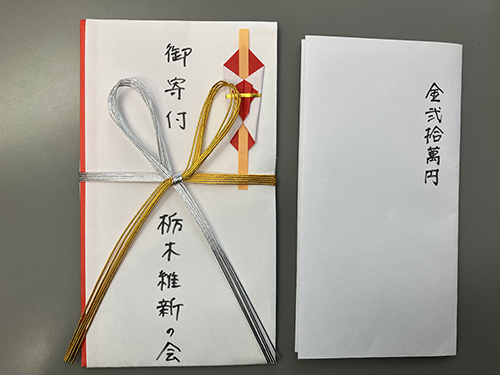 御寄付
栃木維新の会
金弐拾萬円